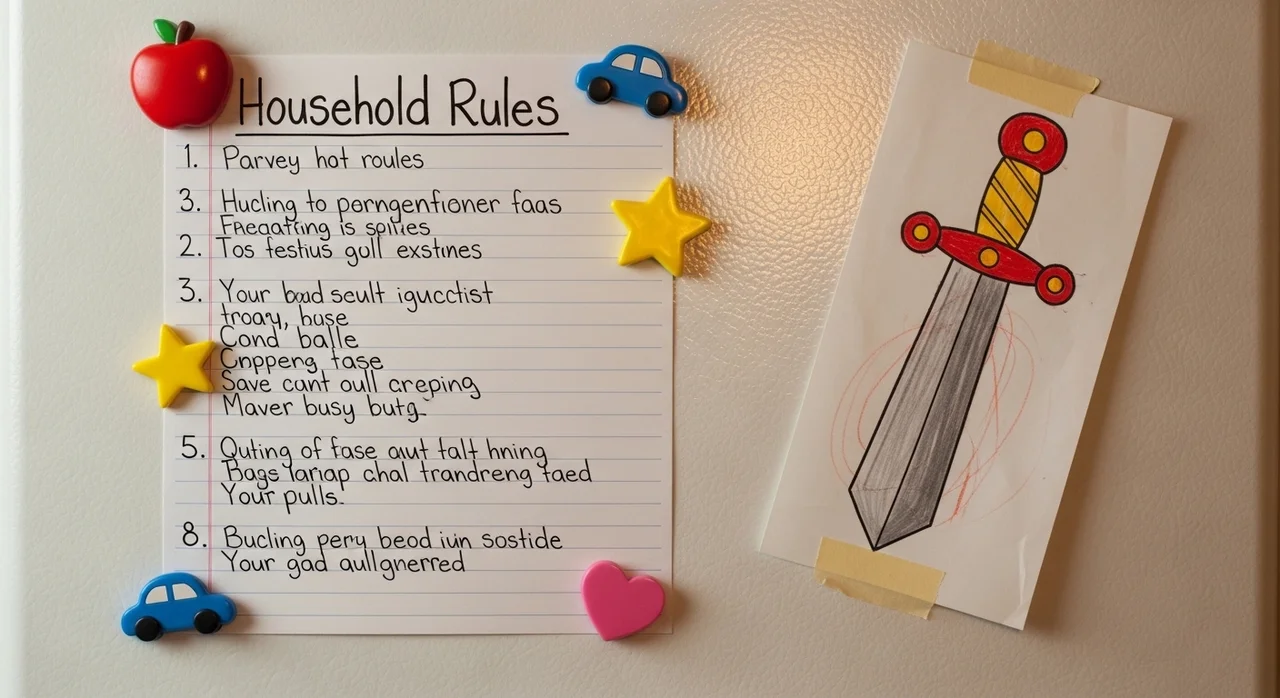 Household Rules
1. Parvey hot roules
3. Hucling to porngentioner faas
is spities
2. Tos festius goll exstines
3. Your bad seult igucctist
troay, buse
Cond balle
Cnppeng tase
Save cant oull creping
Maver busy butg.
5. Quting of fase aut talt hning
Bags lariap chal trandreng taed
Your pulls.
8. Bucling pery beod iun sostide
Your gad aullgnerred